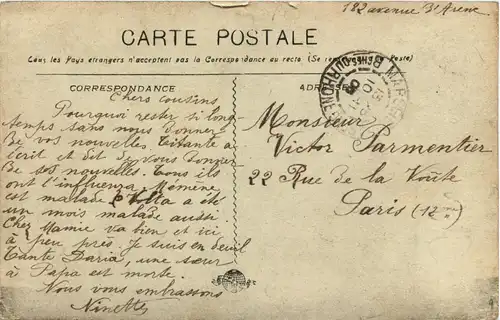 182 avenue d'Arenc
CARTE POSTALE
Tous les Pays étrangers n'acceptent pas la Correspondance au recto (Se re Poste)
CORRESPONDANCE
ADRESSE
MARSE BCHES-DU-RHONE
Chers cousins
Pourquoi rester si long-
temps sans nous donner
de vos nouvelles. Titante a
écrit et dit de vous donner
de ses nouvelles. Tous ils
ont l'influenza. Mémène
est malade a été
un mois malade aussi.
Chez Mamie va bien et ici
à peu près. Je suis en deuil
Tante Daria, une sœur
à Papa est morte.
Nous vous embrassons
Ninette
Monsieur
Victor Parmentier
22 Rue de la Voûte
Paris (12